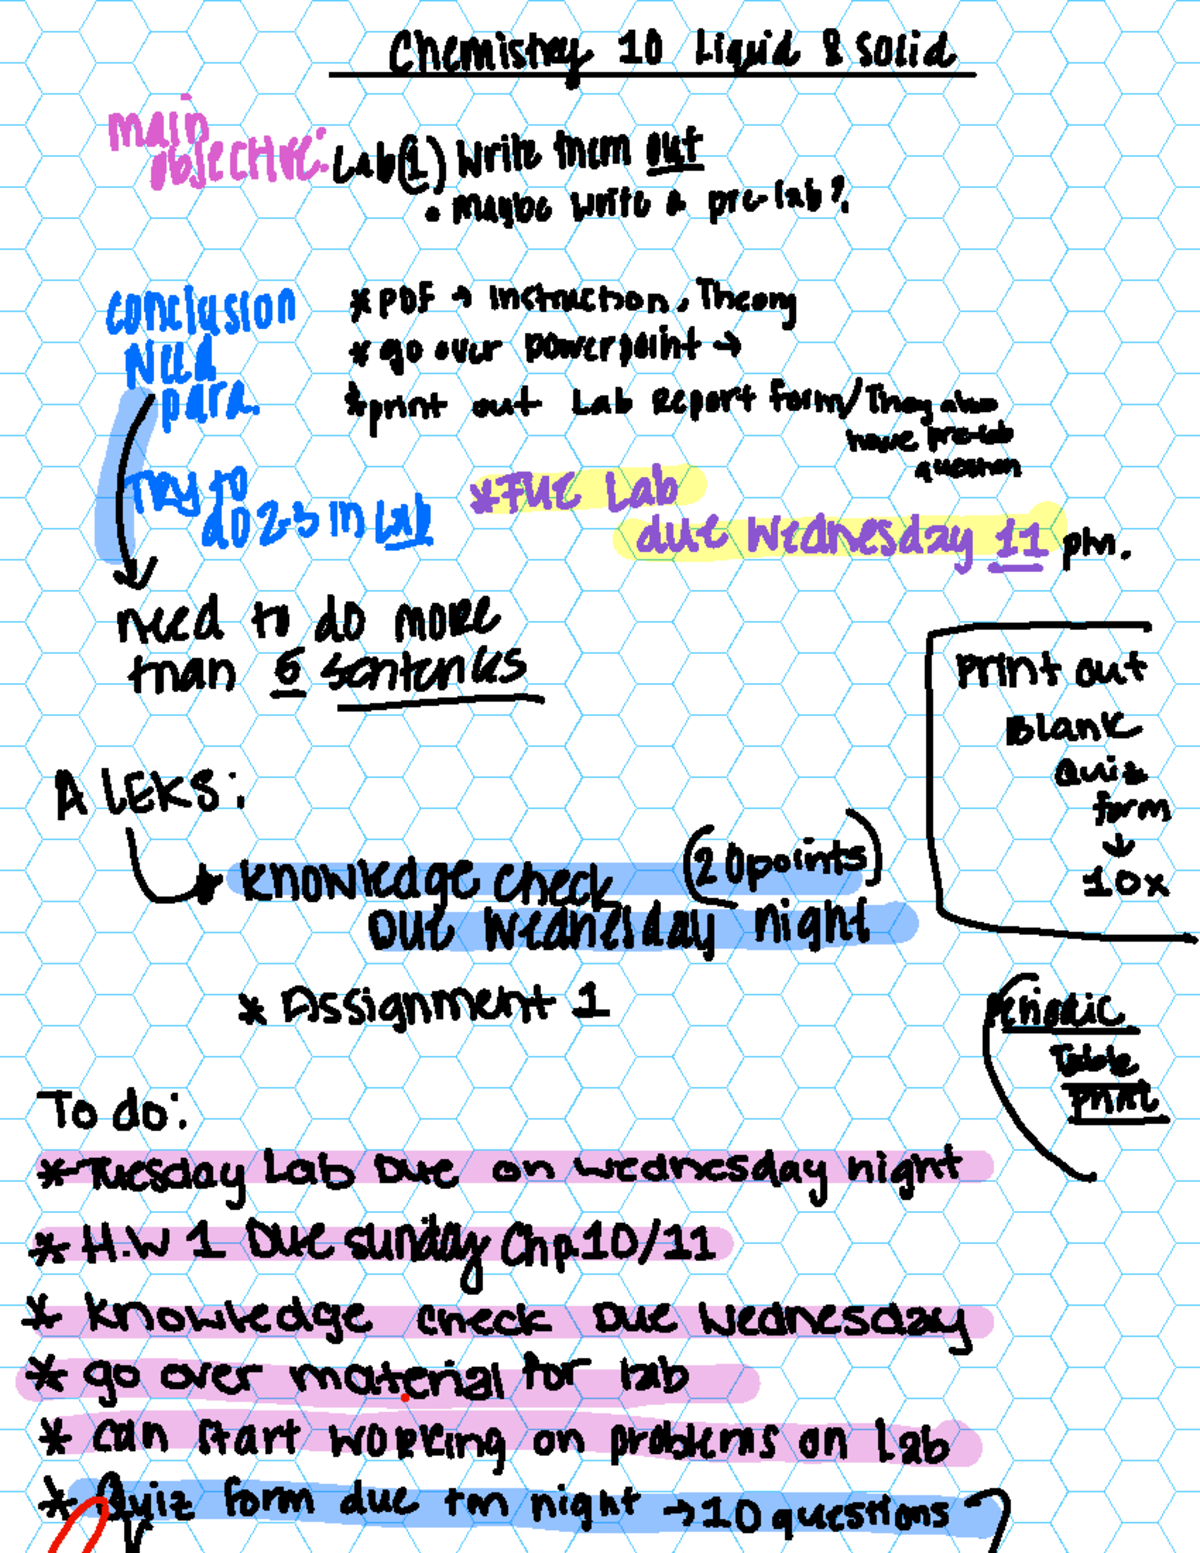 Chemistry 10 Liquid & Solid
main
objective:
Lab(1) Write them out
• Maybe write a pre-lab?
conclusion
Need
para.
* PDF → Instruction, Theory
* go over powerpoint →
* print out Lab Report form/They also
have pre-lab
question
Try to
do 2-3 in Lab
*TUE Lab
due Wednesday 11 pm.
need to do more
than 5 sentences
Print out
Blank
Quiz
form
↓
10x
ALEKS:
Knowledge check (20points)
Due Wednesday night
* Assignment 1
Periodic
Table
print
To do:
*Tuesday Lab Due on Wednesday night
* H.W 1 Due sunday Chp.10/11
* Knowledge check Due Wednesday
* go over material for lab
* can start working on problems on Lab
* Quiz form due tm night →10 questions